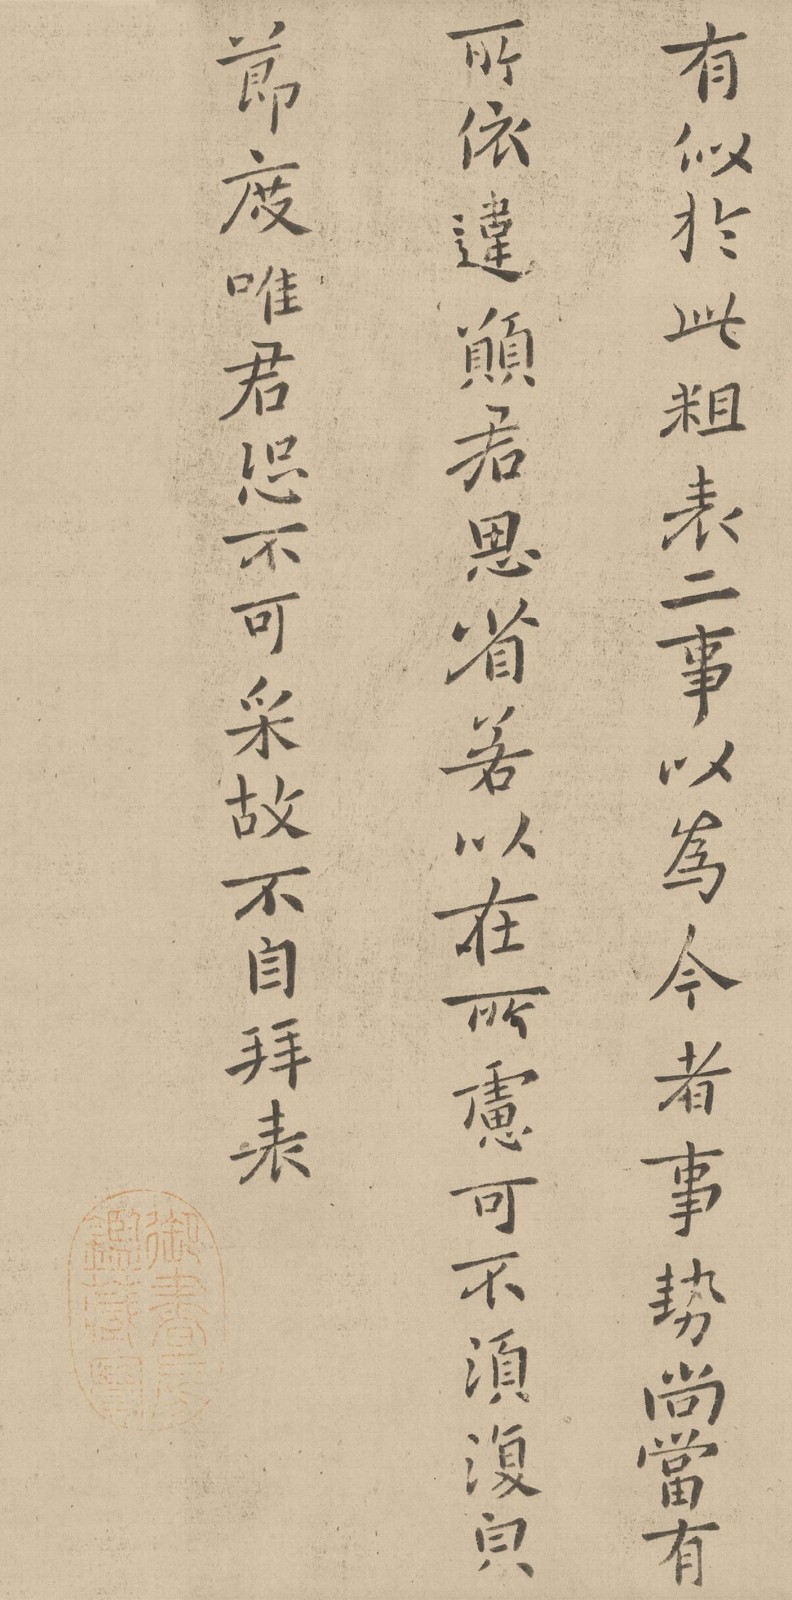 有似於此粗表二事以為今者事勢尚當有
所依違願君思省若以在所慮可不須復皃
節度唯君恐不可采故不自拜表
御書房鑑藏寶